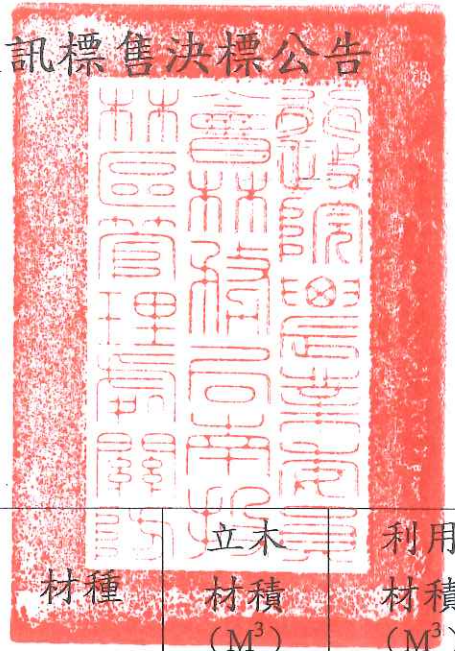 訊標售決標公告
行政院農業委員
會林務局南投
林區管理處關防
材種
立木
材積
(M³)
利用
材積
(M³)